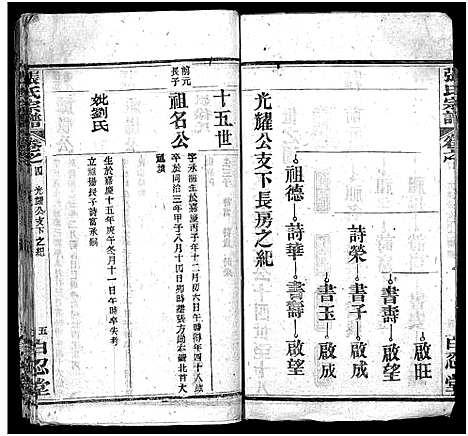 張氏宗譜
卷之
啟旺
書壽
啟望
詩榮
書子
啟成
書玉
啟成
祖德
詩華
書壽
啟望
光耀公支下長房之紀
百忍堂
十五世
前元長子
祖名公
字承
生於嘉慶
丙子年十二月初六日午時得年四十八歲
卒於同治三年甲子八月十四日卯時
妣劉氏
生於嘉慶十五年庚午冬月十一日午時卒失考
立
長子詩富承嗣
張氏宗譜
卷之四
光耀公支下之紀
五
百忍堂